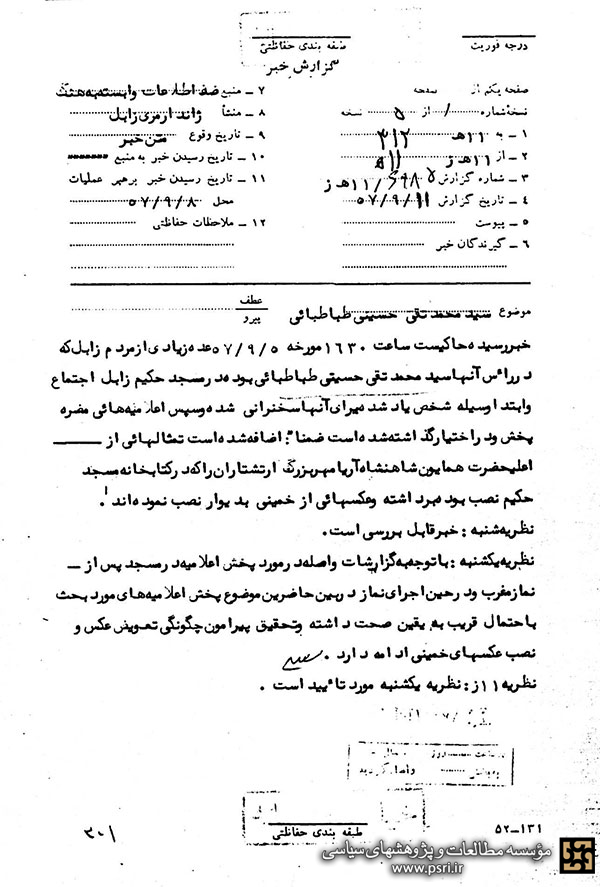 درجه فوریت
طبقه بندی حفاظتی
گزارش خبر
صفحه یکم از صفحه
نسخه شماره ۱ از ۵ نسخه
۱ – به ۱۱ هـ ۳۱۲
۲ – از ۱۱ هـ ز
۳ – شماره گزارش
۴ – تاریخ گزارش ۵۷/۹/۱۱
۵ – پیوست
۶ – گیرندگان خبر
۷ – منبع ضد اطلاعات وابسته به هنگ
۸ – منشأ ژاندارمری زابل
۹ – تاریخ وقوع متن خبر
۱۰ – تاریخ رسیدن خبر به منبع
۱۱ – تاریخ رسیدن خبر برهبر عملیات
محل ۵۷/۹/۸
۱۲ – ملاحظات حفاظتی
موضوع سید محمد تقی حسینی طباطبائی
عطف
پیرو
خبر رسیده حاکیست ساعت ۱۶۳۰ مورخه ۵۷/۹/۵ عده زیادی از مردم زابل که
در رائس آنها سید محمد تقی حسینی طباطبائی بوده در مسجد حکیم زابل اجتماع
وابتدا وسیله شخص یاد شده برای آنها سخنرانی شده و سپس اعلامیه هائی مضره
پخش و در اختیار گذاشته شده است ضمنا" اضافه شده است تمثالهائی از
اعلیحضرت همایون شاهنشاه آریامهر بزرگ ارتشتاران را که در کتابخانه مسجد
حکیم نصب بوده برداشته و عکسهائی از خمینی بدیوار نصب نموده اند.
نظریه شنبه : خبر قابل بررسی است.
نظریه یکشنبه : با توجه به گزارشات واصله در مورد پخش اعلامیه در مسجد پس از
نماز مغرب و در حین اجرای نماز در بین حاضرین موضوع پخش اعلامیه های مورد بحث
با حتمال قریب به یقین صحت داشته و تحقیق پیرامون چگونگی تعویض عکس و
نصب عکسهای خمینی ادامه دارد .
نظریه ۱۱ز : نظریه یکشنبه مورد تائید است .
طبقه بندی حفاظتی
۵۲–۱۳۱
۳۰۱
مؤسسه مطالعات و پژوهشهای سیاسی
www.psri.ir